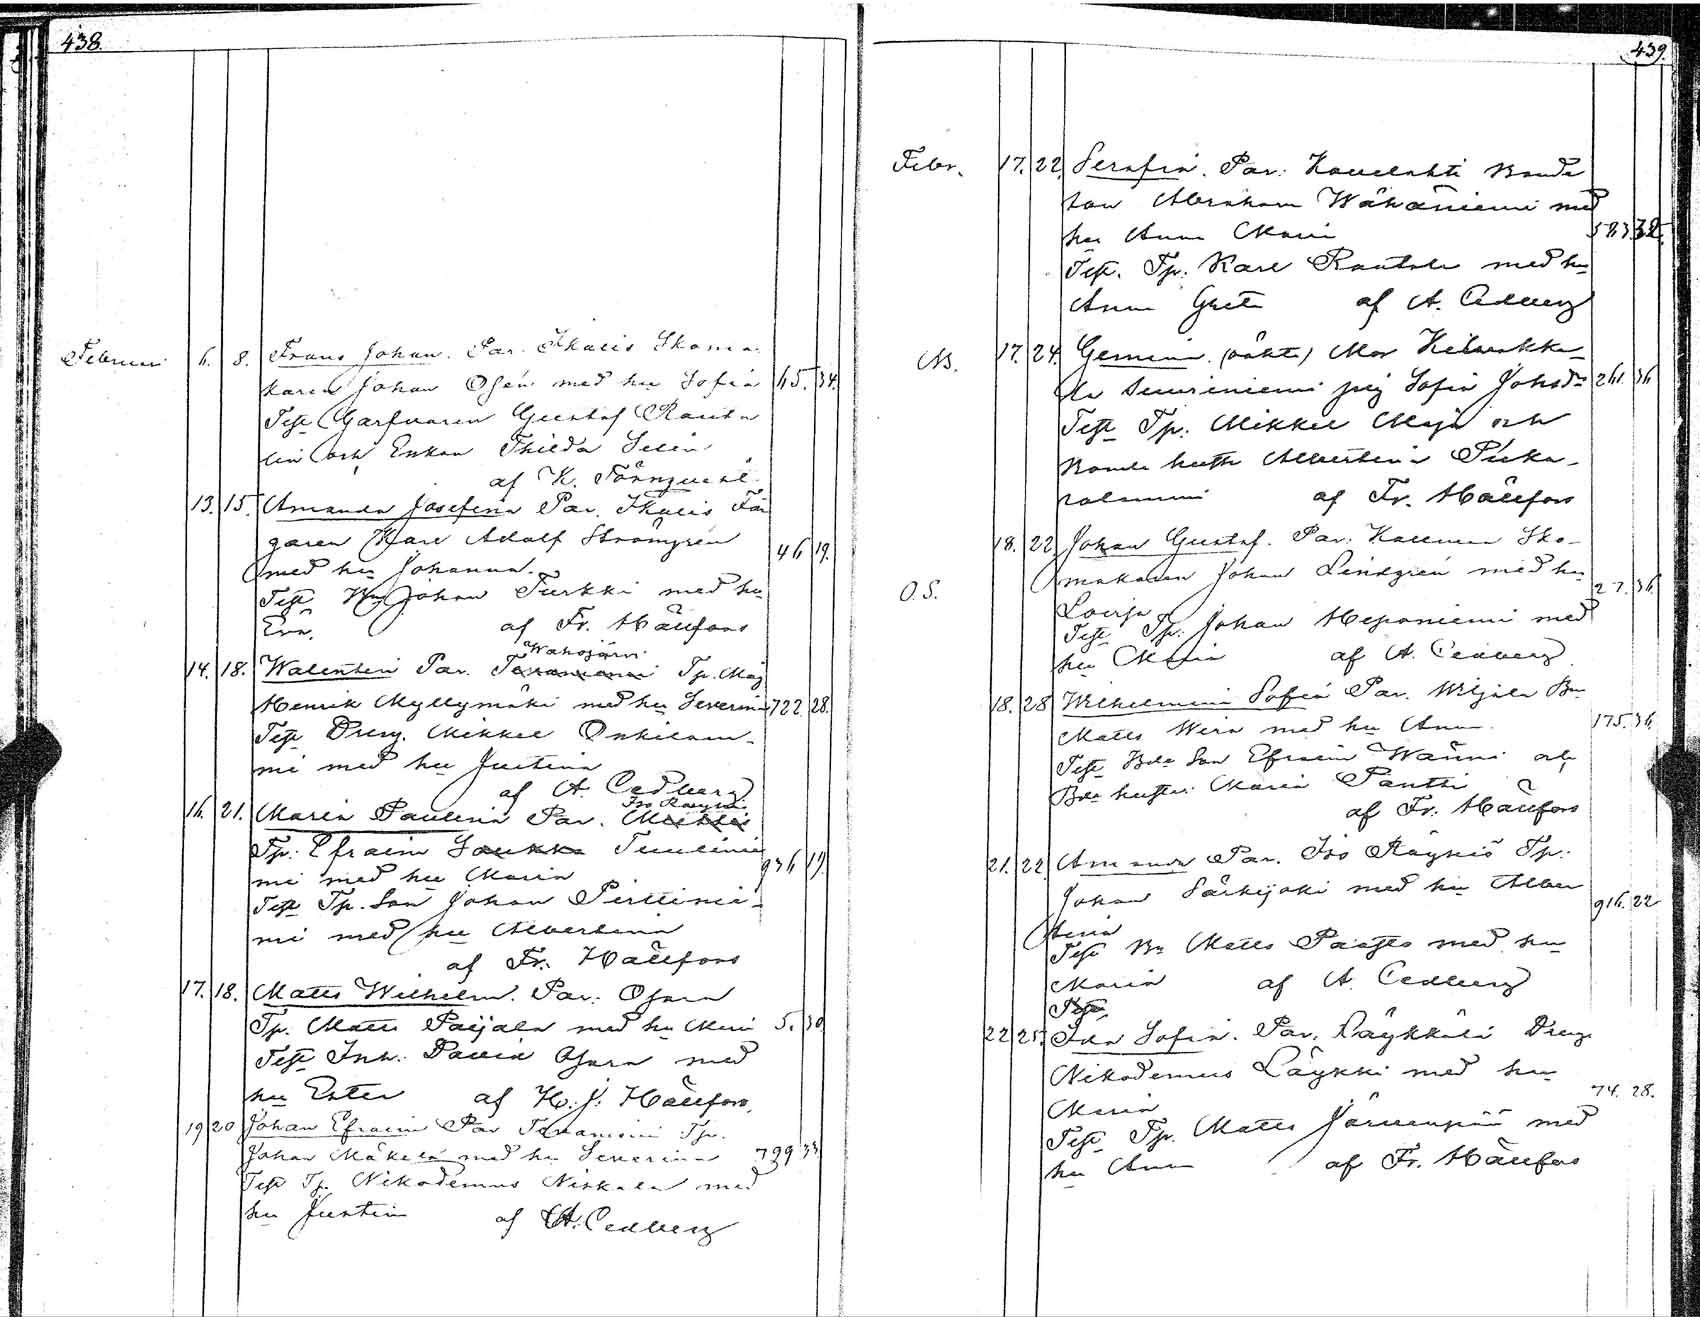 438.
Februari 6. 8. Frans Johan. Par. Ikalis Skoma-
karen Johan Osén med hu Sofia 65. 34.
Test Garfvaren Gustaf Rauta
lin och Enkan Thilda Selin
af K. Törnqvist
13. 15. Amanda Josefina Par. Ikalis Fär
garen Karl Adolf Strömgrén 46 19.
med hu Johanna.
Test Johan Turkki med hu
Eva. af Fr. Hällfors
Wahojärvi
14. 18. Walentin Par. Tp. Måg
Henrik Myllymäki med hu Severina 722 28.
Test Dreng. Mikkel Onkilam-
mi med hu Justina
af A. Cedberg
Iso Röyhiö
16. 21. Maria Paulina Par.
Tp. Efraim Tuulinie
mi med hu Maria 936 19.
Test Tp. Son Johan Perttinie-
mi med hu Albertina
af Fr. Hällfors
17. 18. Matts Wilhelm. Par. Osara
Tp. Matts Paijala med hu Mari 5. 30
Test Inh. David Osara med
hu Ester af H. J. Hällfors.
19 20 Johan Efraim Par Tp.
Johan Mäkelä med hu Severina 799 33
Test Tp. Nikodemus Niskala med
hu Justina af A. Cedberg
439.
Febr. 17. 22. Serafia. Par: Kovelahti Bonde
son Abraham Wähäniemi med
hu Anna Maria 583 32.
Test. Tp. Karl Rautala med hu
Anna Greta af A. Cedberg
17. 24. Gemima. (oäkta) Mor
pig Sofia Johsdr 261. 36
Test Tp. Mikkel Maja och
Bonde hustr Albertina Pirka-
af Fr. Hällfors
18. 22. Johan Gustaf. Par: Sko-
makaren Johan Lindgrén med hu
O.S. 27. 36.
Lovisa
Test Tp. Johan Heponiemi med
hu Maria af A. Cedberg
18. 28 Wilhelmina Sofia Par. Wiljala Bn
Matts Wira med hu Anna. 175. 36.
Test Bde Son Efraim Wänni och
Bde hustru Maria Pantti
af Fr. Hällfors
21. 22. Amanda Par. Iso Röyhiö Tp.
Johan Särkijoki med hu Alber
tina 916. 22
Test Bn Matts med hu
Maria af A. Cedberg
22 25. Ida Sofia. Par. Läykkälä Dreng
Nikodemus Läykki med hu
Maria 74. 28.
Test Tp. Matts Järvenpää med
hu Anna af Fr. Hällfors